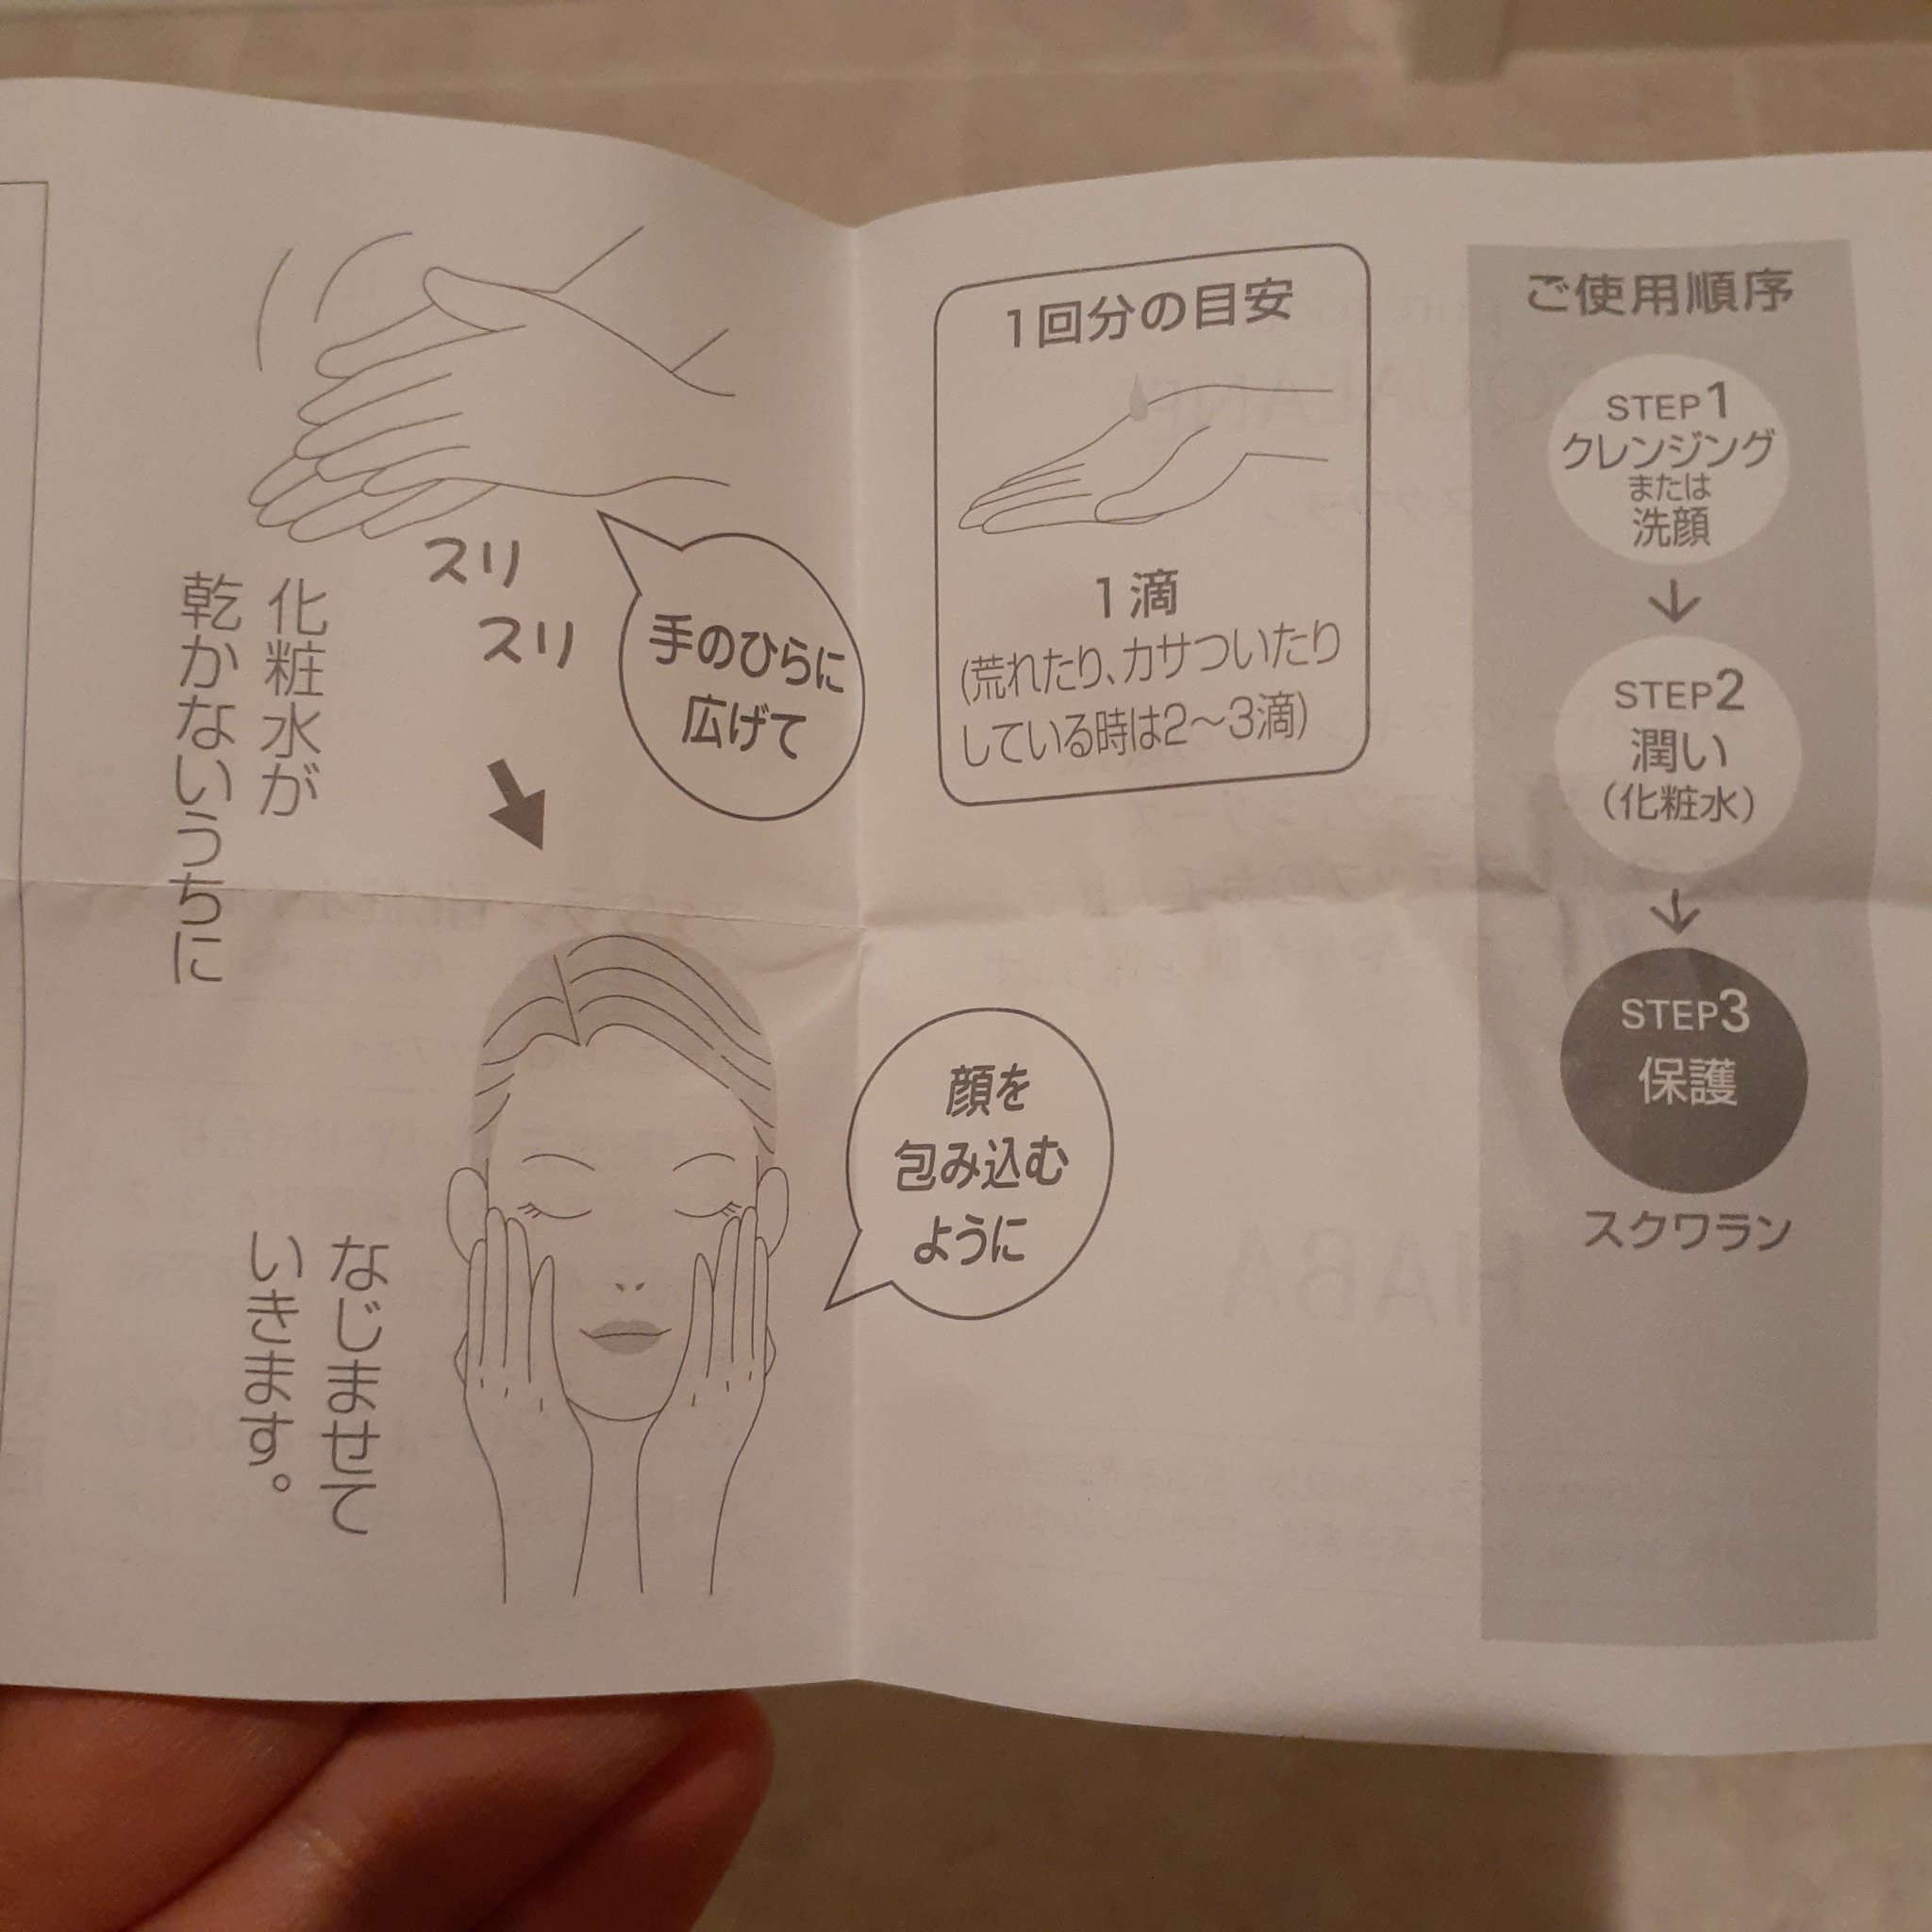 ご使用順序
STEP1
クレンジング
または
洗顔
STEP2
潤い
(化粧水)
STEP3
保護
スクワラン
1回分の目安
1滴
(荒れたり、カサついたり
している時は2〜3滴)
手のひらに
広げて
スリ
スリ
化粧水が
乾かないうちに
顔を
包み込む
ように
なじませて
いきます。
HABA